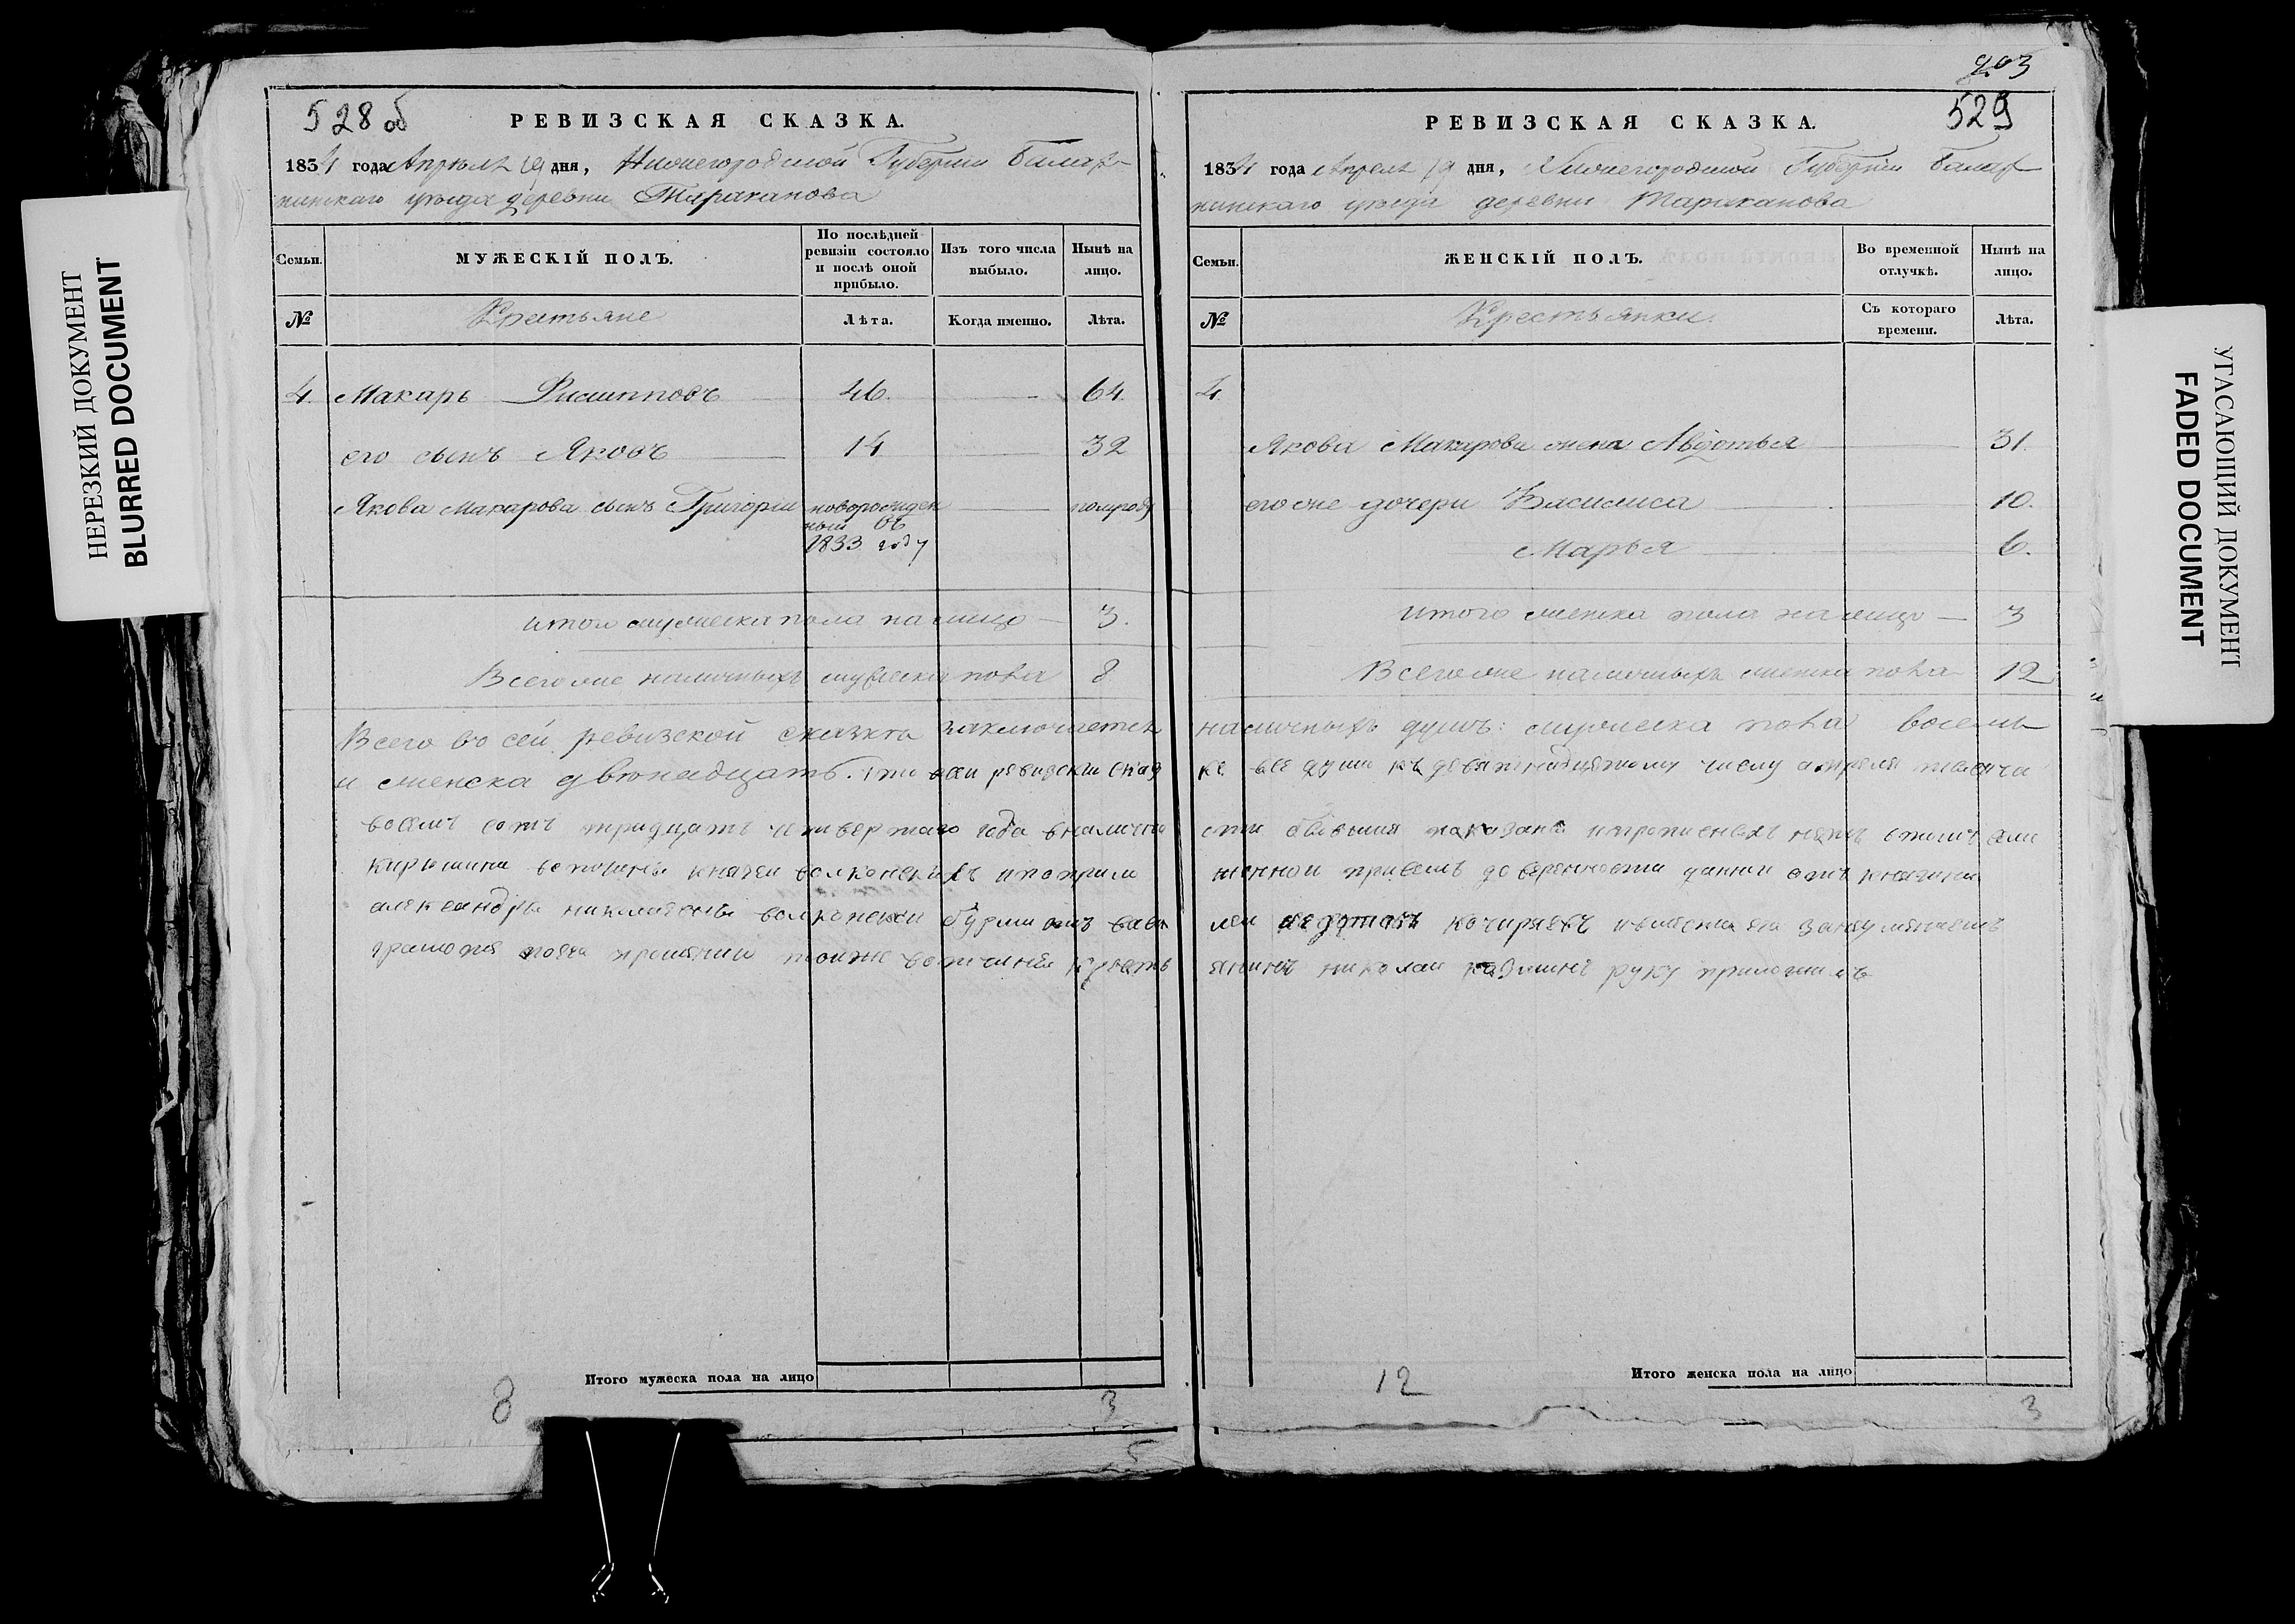 НЕРЕЗКИЙ ДОКУМЕНТ
BLURRED DOCUMENT
528 об
РЕВИЗСКАЯ СКАЗКА.
1834 года Апреля 19 дня, Нижегородской Губернии Балах-
нинскаго уезда деревни Тараканова
Семьи.
МУЖЕСКІЙ ПОЛЪ.
По послѣдней ревизіи состояло и послѣ оной прибыло.
Изъ того числа выбыло.
Нынѣ на лицо.
№
Крестьяне
Лѣта.
Когда именно.
Лѣта.
4. Макаръ Филипповъ 46. 64.
его сынъ Яковъ 14 32
Якова Макарова сынъ Григорій новорожден
ный въ
1833 году
полгода
итого мужеска пола на лицо 3.
Всего же наличныхъ мужеска пола 8
Всего во сей ревизской сказке заключается
и женска двенадцать. Что всей ревиской сказ
восемъ сотъ тридцать четвертаго года вналично
вотчины князей волконскихъ
александры николаевны волконской бурмистъ
грамоте тойже вотчины кресть
Итого мужеска пола на лицо
8
3
5
203
529
РЕВИЗСКАЯ СКАЗКА.
1834 года Апреля 19 дня, Нижегородской Губерніи Балах
нинскаго уезда деревни Тараканова
Семьи.
ЖЕНСКІЙ ПОЛЪ.
Во временной отлучкѣ.
Нынѣ на лицо.
№
Крестьянки.
Съ котораго времени.
Лѣта.
4.
Якова Макарова жена Авдотья 31.
его же дочери Василиса 10.
Марья 6.
итого женска пола на лицо 3
Всего же наличныхъ женска пола 12
наличныхъ душъ: мужеска пола восемь
ке все души къ девятнадцетому числу апреля тысеча
сти бывшия показаны
доверенности данной отъ княгини
николай руку приложилъ
Итого женска пола на лицо
12
3
УГАСАЮЩИЙ ДОКУМЕНТ
FADED DOCUMENT